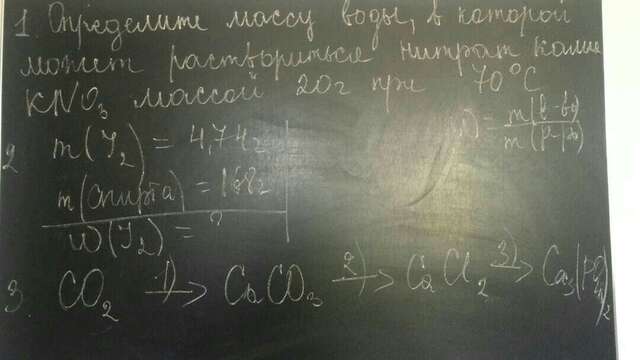 1. Определите массу воды, в которой
может раствориться нитрат калия
KNO₃ массой 20г при 70°C
ω = m(в-ва) / m(р-ра)
2 m(I₂) = 4,74г
m(спирта) = 158г
ω(I₂) = ?
3. CO₂ 1)→ CaCO₃ 2)→ CaCl₂ 3)→ Ca₃(PO₄)₂